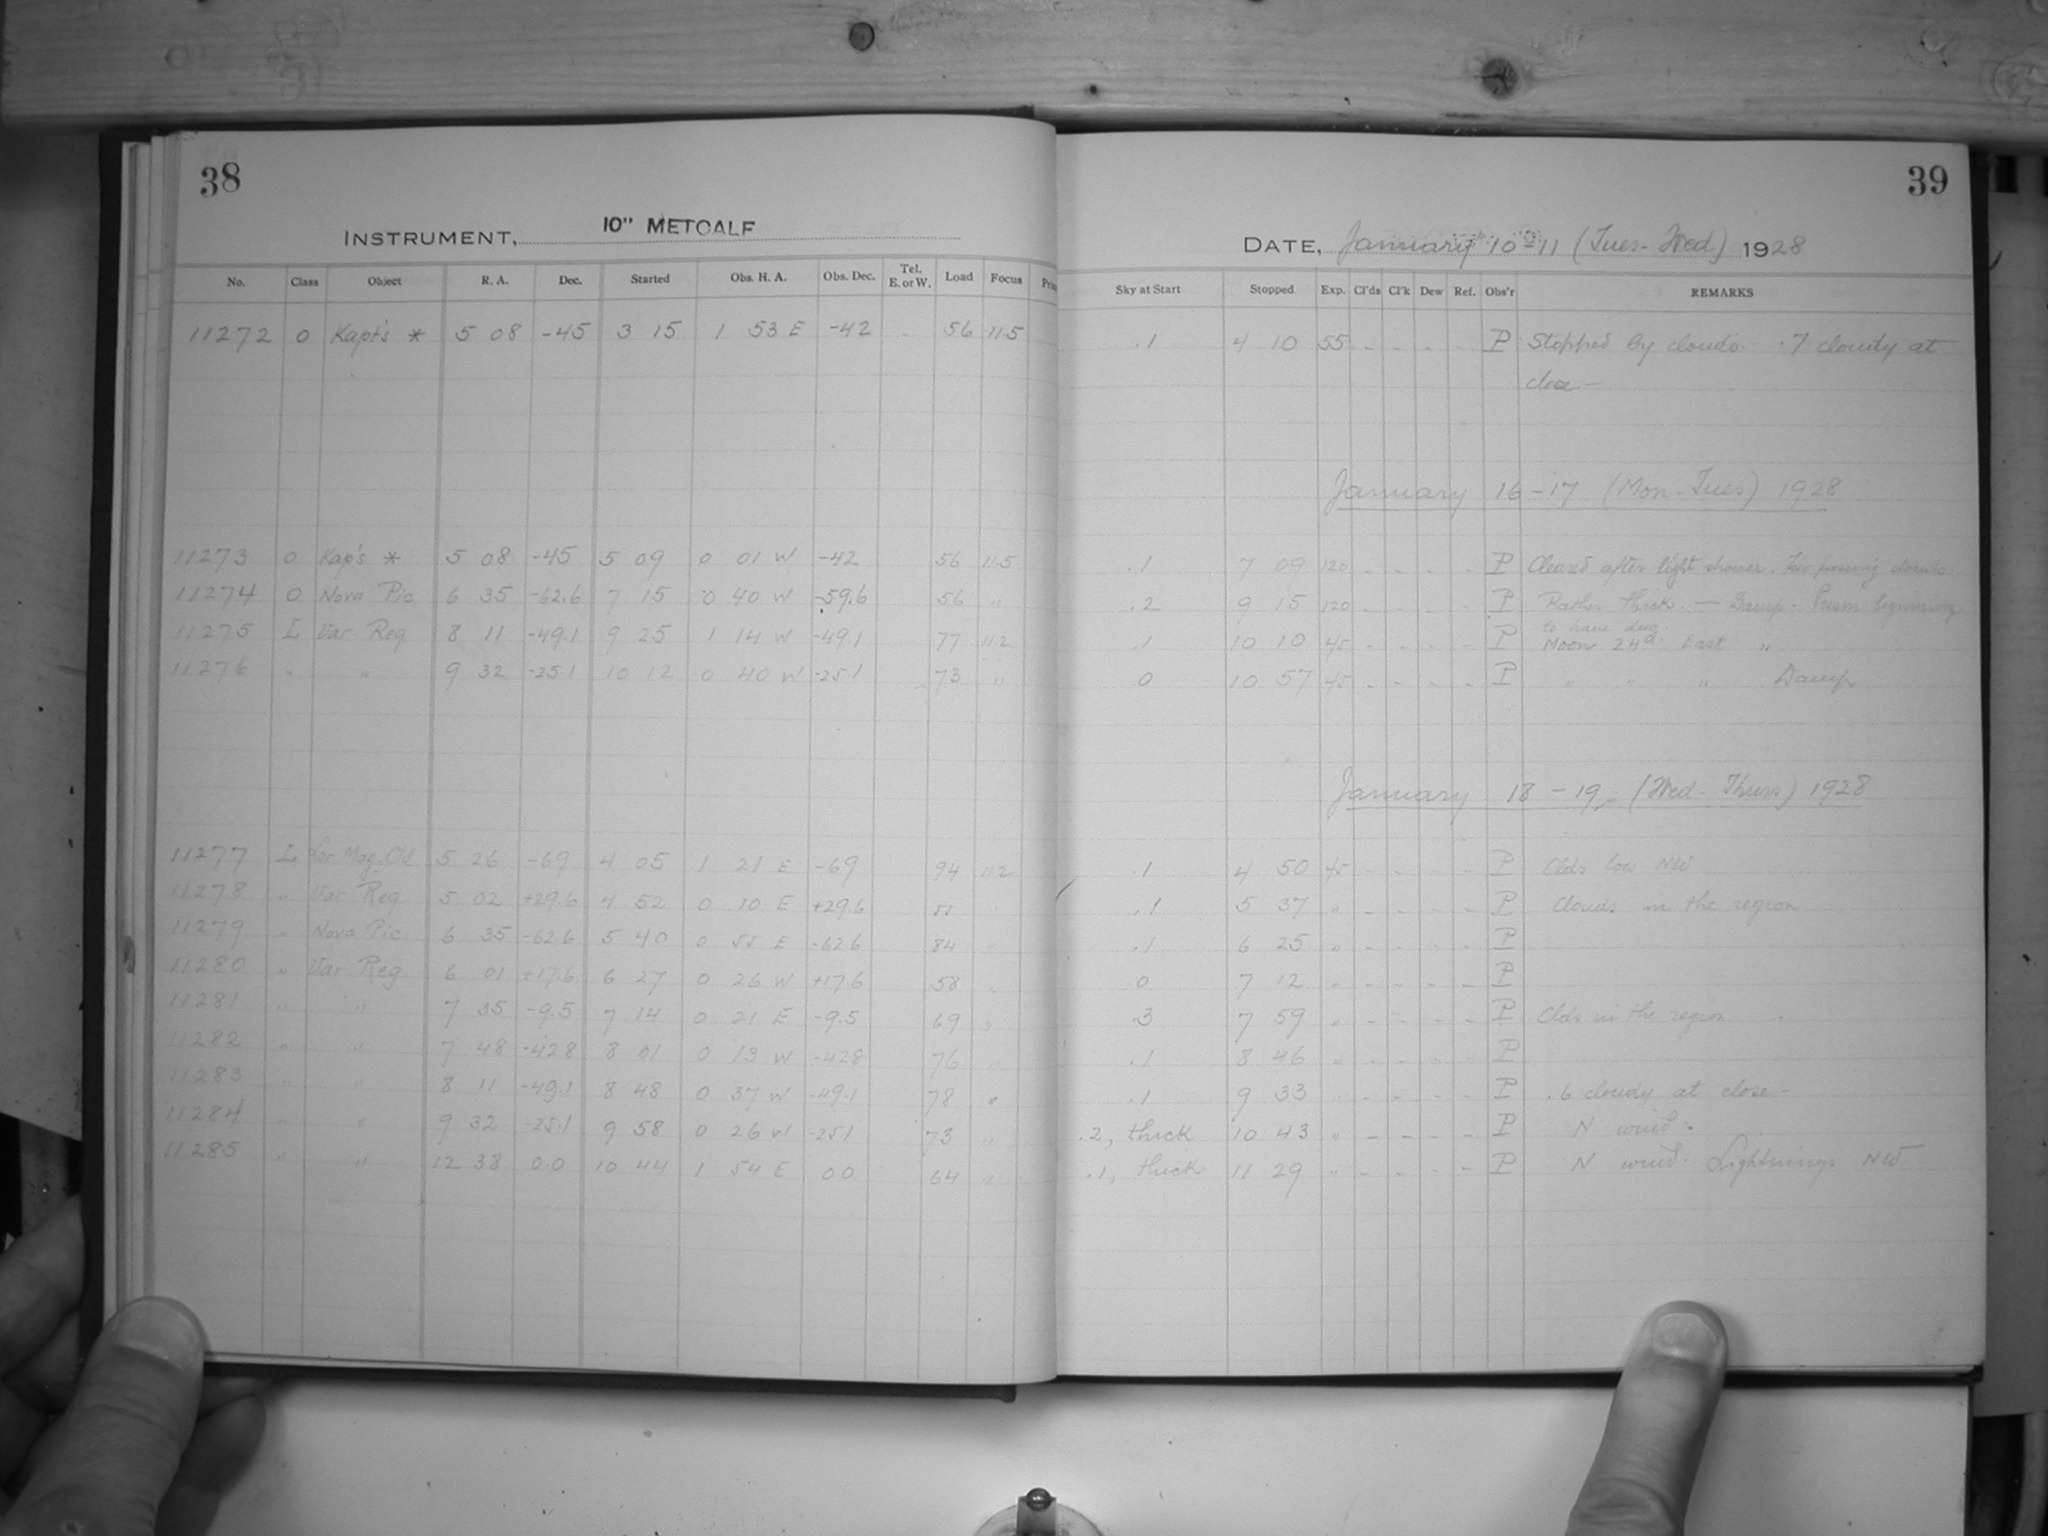 38
INSTRUMENT, 10" METCALF
No. Class Object R. A. Dec. Started Obs. H. A. Obs. Dec. Tel. E. or W. Load Focus
11272 O Kapt's * 5 08 -45 3 15 1 53 E -42 56 11.5
11273 O Kap's * 5 08 -45 5 09 0 01 W -42 56 11.5
11274 O Nova Pic 6 35 -62.6 7 15 0 40 W -59.6 56 "
11275 L Var Reg 8 11 -49.1 9 25 1 14 W -49.1 77 11.2
11276 " " 9 32 -25.1 10 12 0 40 W -25.1 73 "
11277 L Mag. Cld 5 26 -69 4 05 1 21 E -69 94 11.2
11278 " Var Reg 5 02 +29.6 4 52 0 10 E +29.6 55 "
11279 " Nova Pic. 6 35 -62.6 5 40 0 55 E -62.6 84 "
11280 " Var Reg. 6 01 +17.6 6 27 0 26 W +17.6 58 "
11281 " " 7 35 -9.5 7 14 0 21 E -9.5 69 "
11282 " " 7 48 -42.8 8 01 0 13 W -42.8 76 "
11283 " " 8 11 -49.1 8 48 0 37 W -49.1 78 "
11284 " " 9 32 -25.1 9 58 0 26 W -25.1 73 "
11285 " " 12 38 0.0 10 44 1 54 E 0.0 64 "
39
DATE, January 10-11 (Tues-Wed) 1928
Sky at Start Stopped Exp. Cl'ds Cl'k Dew Ref. Obs'r REMARKS
.1 4 10 55 - - - - P Stopped by clouds. .7 cloudy at
close -
January 16-17 (Mon-Tues) 1928
.1 7 09 120 - - - - P Cleared after light shower. Few passing clouds.
.2 9 15 120 - - - - P Rather thick. - Damp. Prism beginning
to have dew.
.1 10 10 45 - - - - P Moon 24d. East "
0 10 57 45 - - - - P " " " Damp.
January 18-19 - (Wed-Thurs) 1928
.1 4 50 45 - - - - P Clds low NW
.1 5 37 " - - - - P Clouds in the region
.1 6 25 " - - - - P
0 7 12 " - - - - P
.3 7 59 " - - - - P Clds in the region
.1 8 46 " - - - - P
.1 9 33 " - - - - P .6 cloudy at close -
.2, thick 10 43 " - - - - P N wind.
.1, thick 11 29 " - - - - P N wind. Lightnings NW